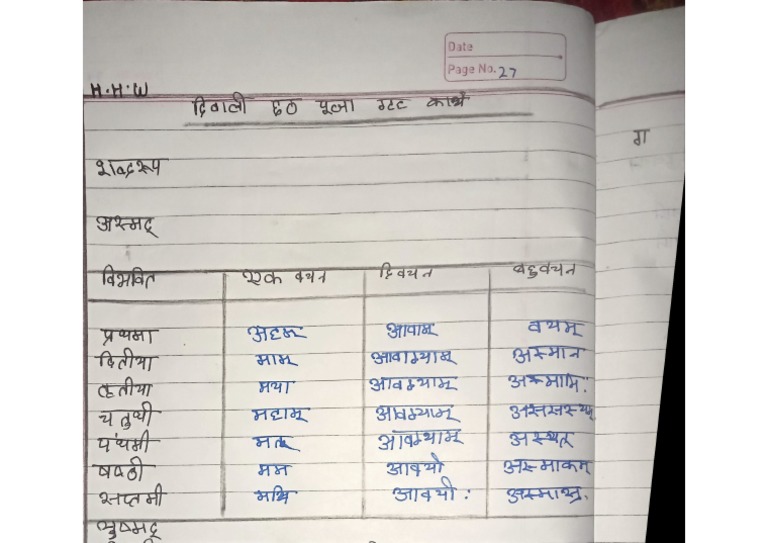 Date
Page No. 27
H.H.W
दिवाली छठ पूजा गृह कार्य
ग
शब्दरूप
अस्मद्
विभक्ति एक वचन द्विवचन बहुवचन
प्रथमा अहम् आवाम् वयम्
द्वितीया माम् आवाभ्याम् अस्मान
तृतीया मया आवभ्याम् अस्माभि:
चतुर्थी मह्यम् आवभ्याम्
पंचमी मत् आवभ्याम् अस्थत्
षष्ठी मम आवयो अस्माकम्
सप्तमी मयि आवयो: अस्मासु.
युष्मद्